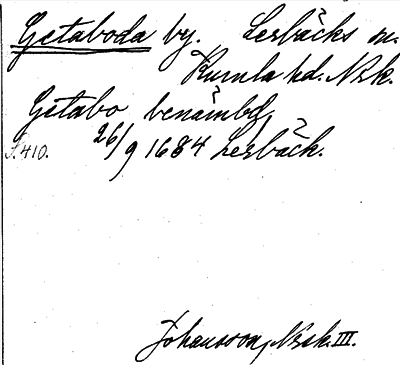 Getaboda by. Lerbäcks sn.
Kumla hd. Nrk.
Getabo benämbd,
S. 410. 26/9 1684 Lerbäck.
Johansson, Nrk. III.